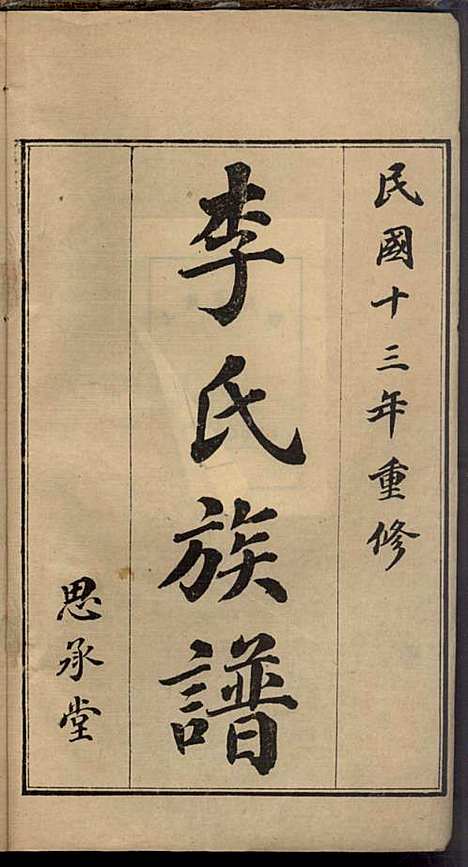 民國十三年重修
李氏族譜
思承堂